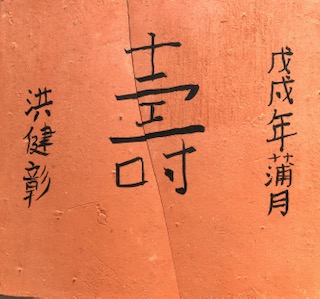 戊戌年蒲月
壽
洪健彰